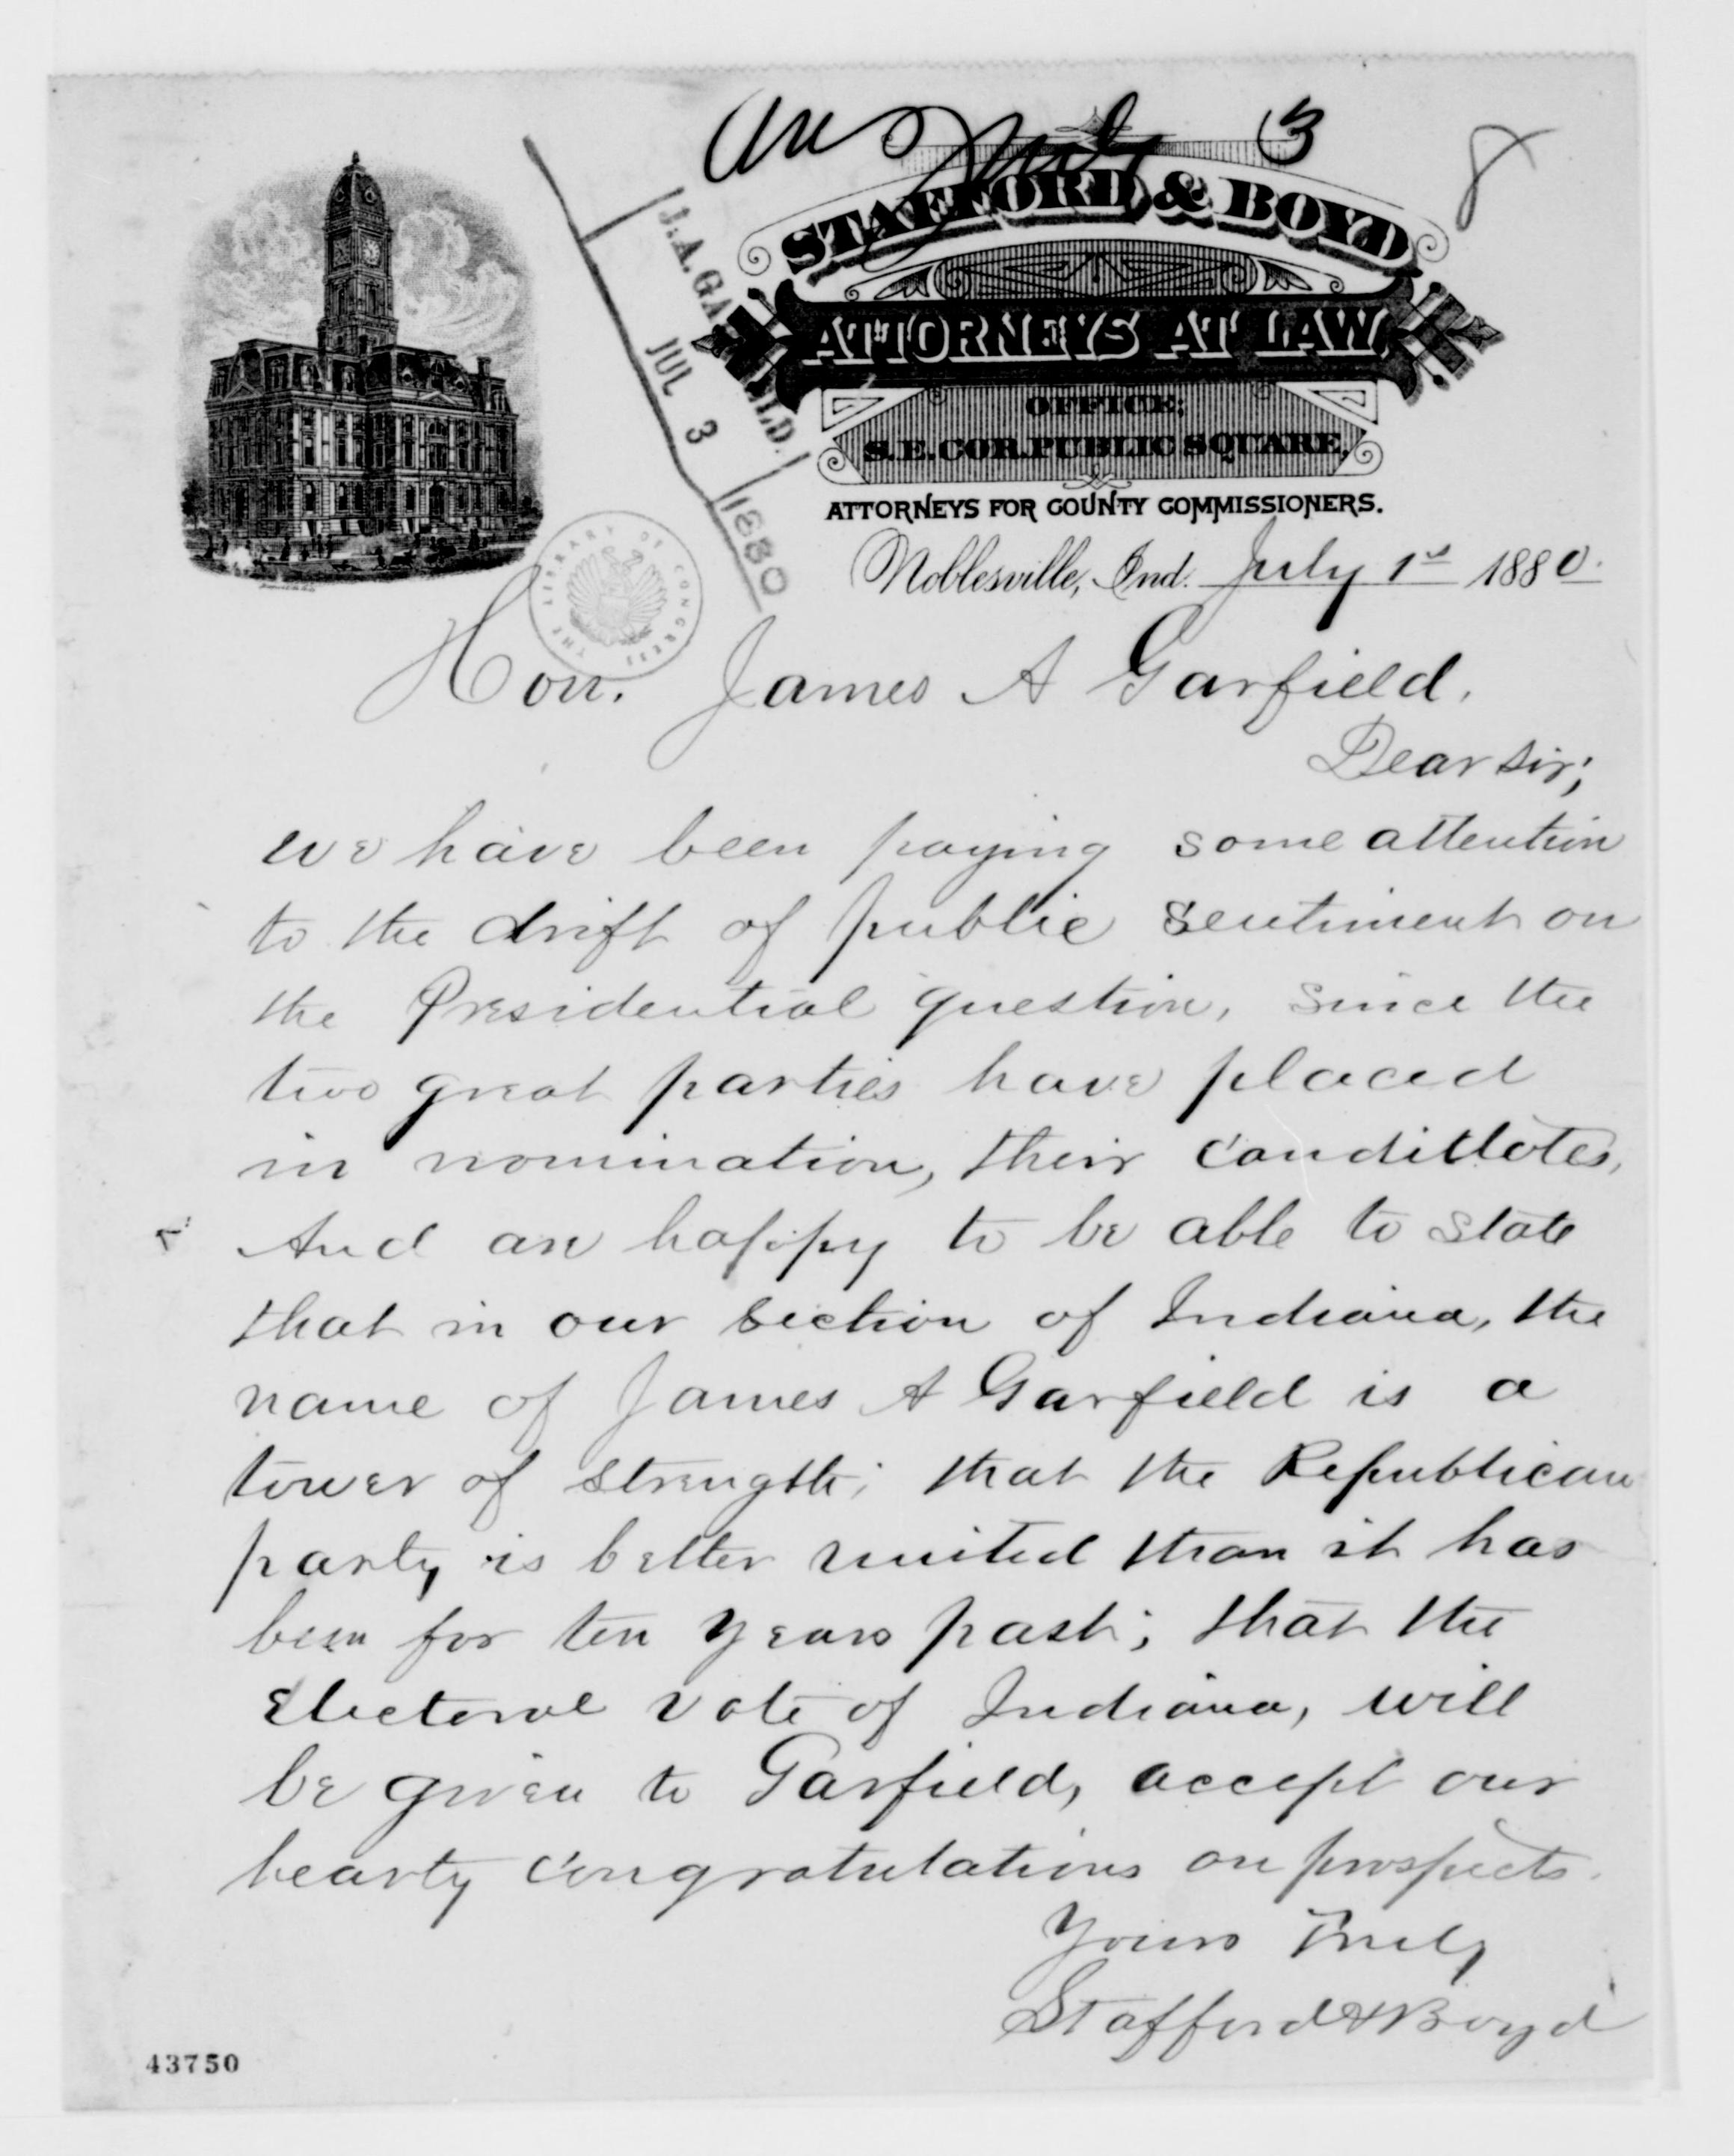 Ans July 3
8
STAFFORD & BOYD
ATTORNEYS AT LAW,
OFFICE:
S.E. COR. PUBLIC SQUARE.
ATTORNEYS FOR COUNTY COMMISSIONERS.
J. A. GARFIELD.
JUL 3
1880
THE LIBRARY OF CONGRESS
Noblesville, Ind. July 1st 1880.
Hon. James A Garfield.
Dear Sir;
we have been paying some attention
to the drift of public sentiment on
the Presidential question, since the
two great parties have placed
in nomination, their candidates,
And are happy to be able to state
that in our section of Indiana, the
name of James A Garfield is a
tower of strength; that the Republican
party is better united than it has
been for ten years past; that the
Electoral vote of Indiana, will
be given to Garfield, accept our
hearty congratulations on prospects.
Yours Truly
Stafford & Boyd
43750